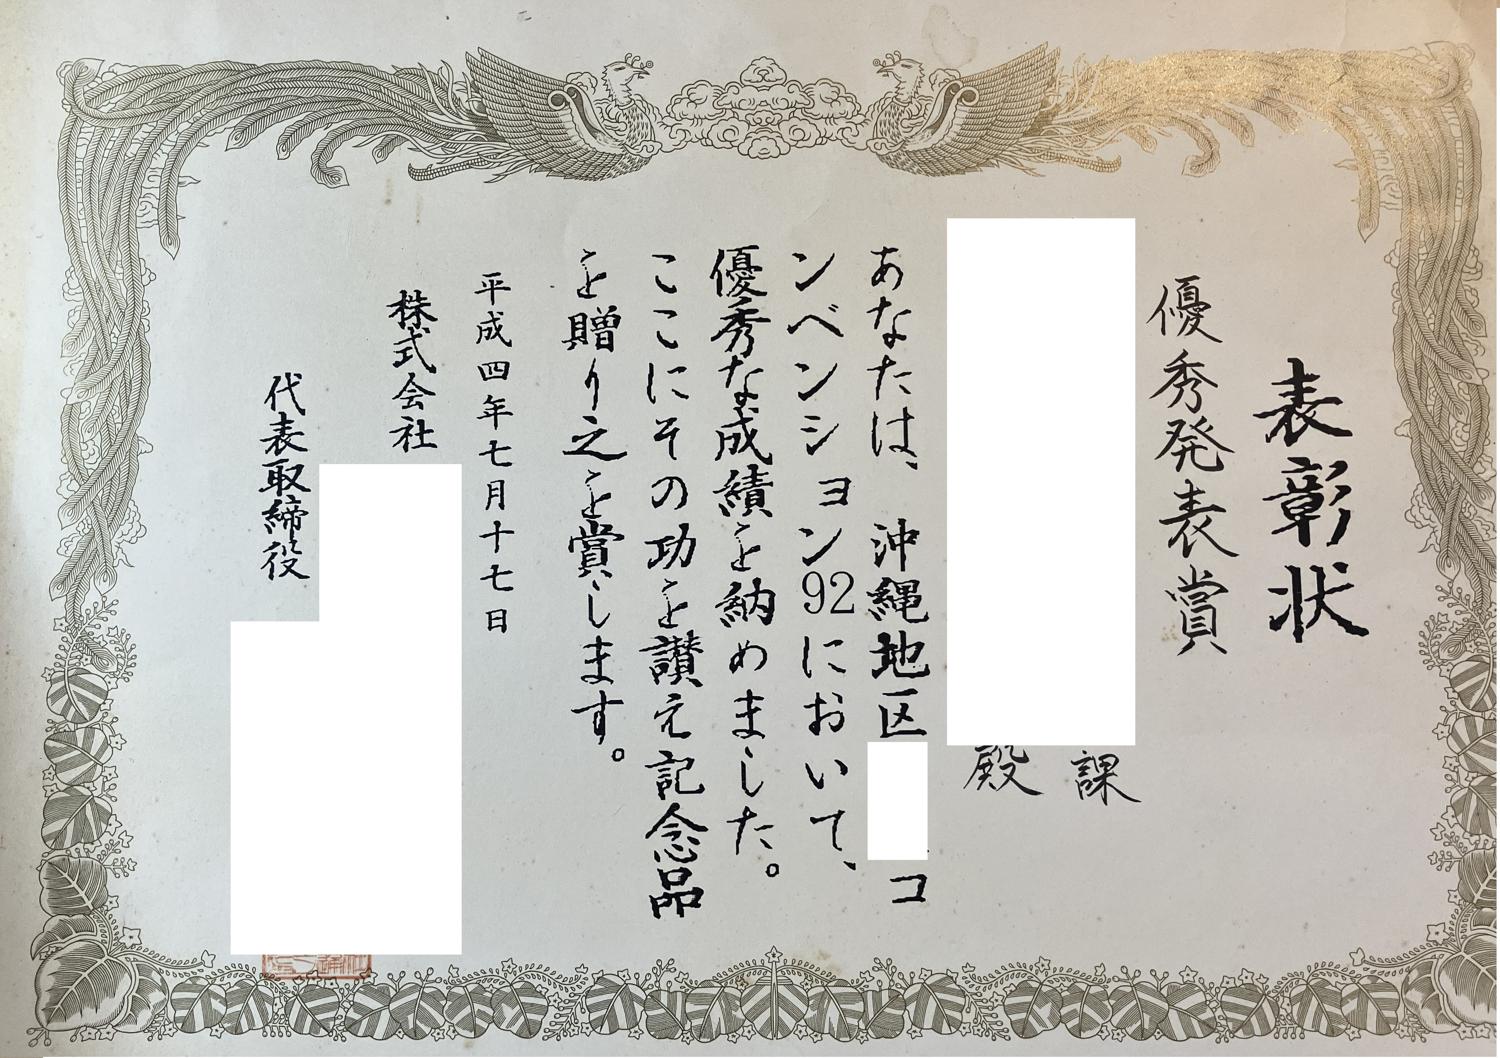 表彰状
優秀発表賞
課
殿
あなたは、沖縄地区 コ
ンベンション92において、
優秀な成績を納めました。
ここにその功を讃え記念品
を贈り之を賞します。
平成四年七月十七日
株式会社
代表取締役